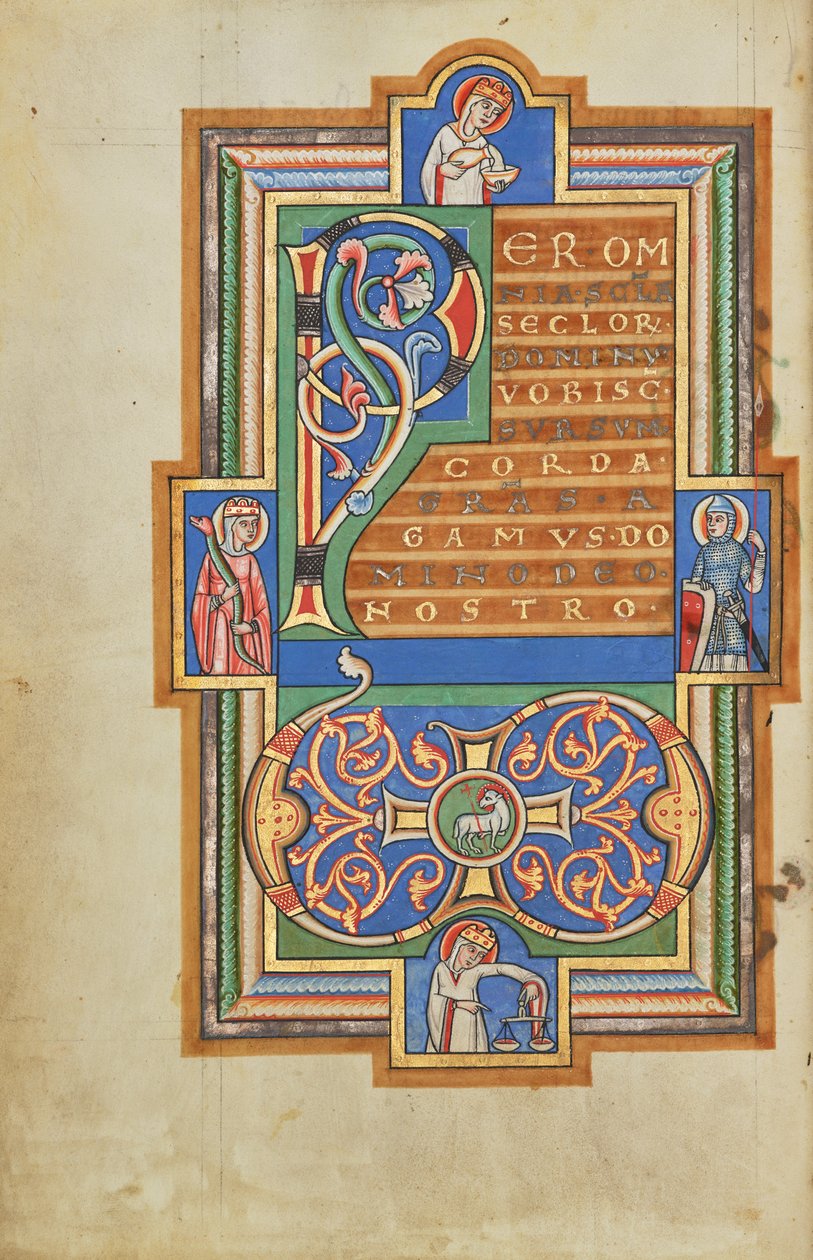 PER OM
NIA·SCLA
SECLOR·
DOMINUS
VOBISC·
SVRSVM·
CORDA·
GRAS·A
GAMVS·DO
MINO DEO·
NOSTRO·